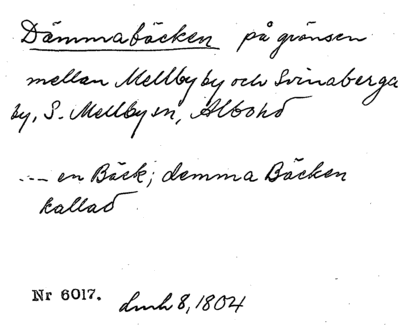 Dämmabäcken på gränsen
mellan Mellby by och Svinaberga
by, S. Mellby sn, Albo hd
--- en Bäck; demma Bäcken
kallad
Nr 6017. lmh 8, 1804